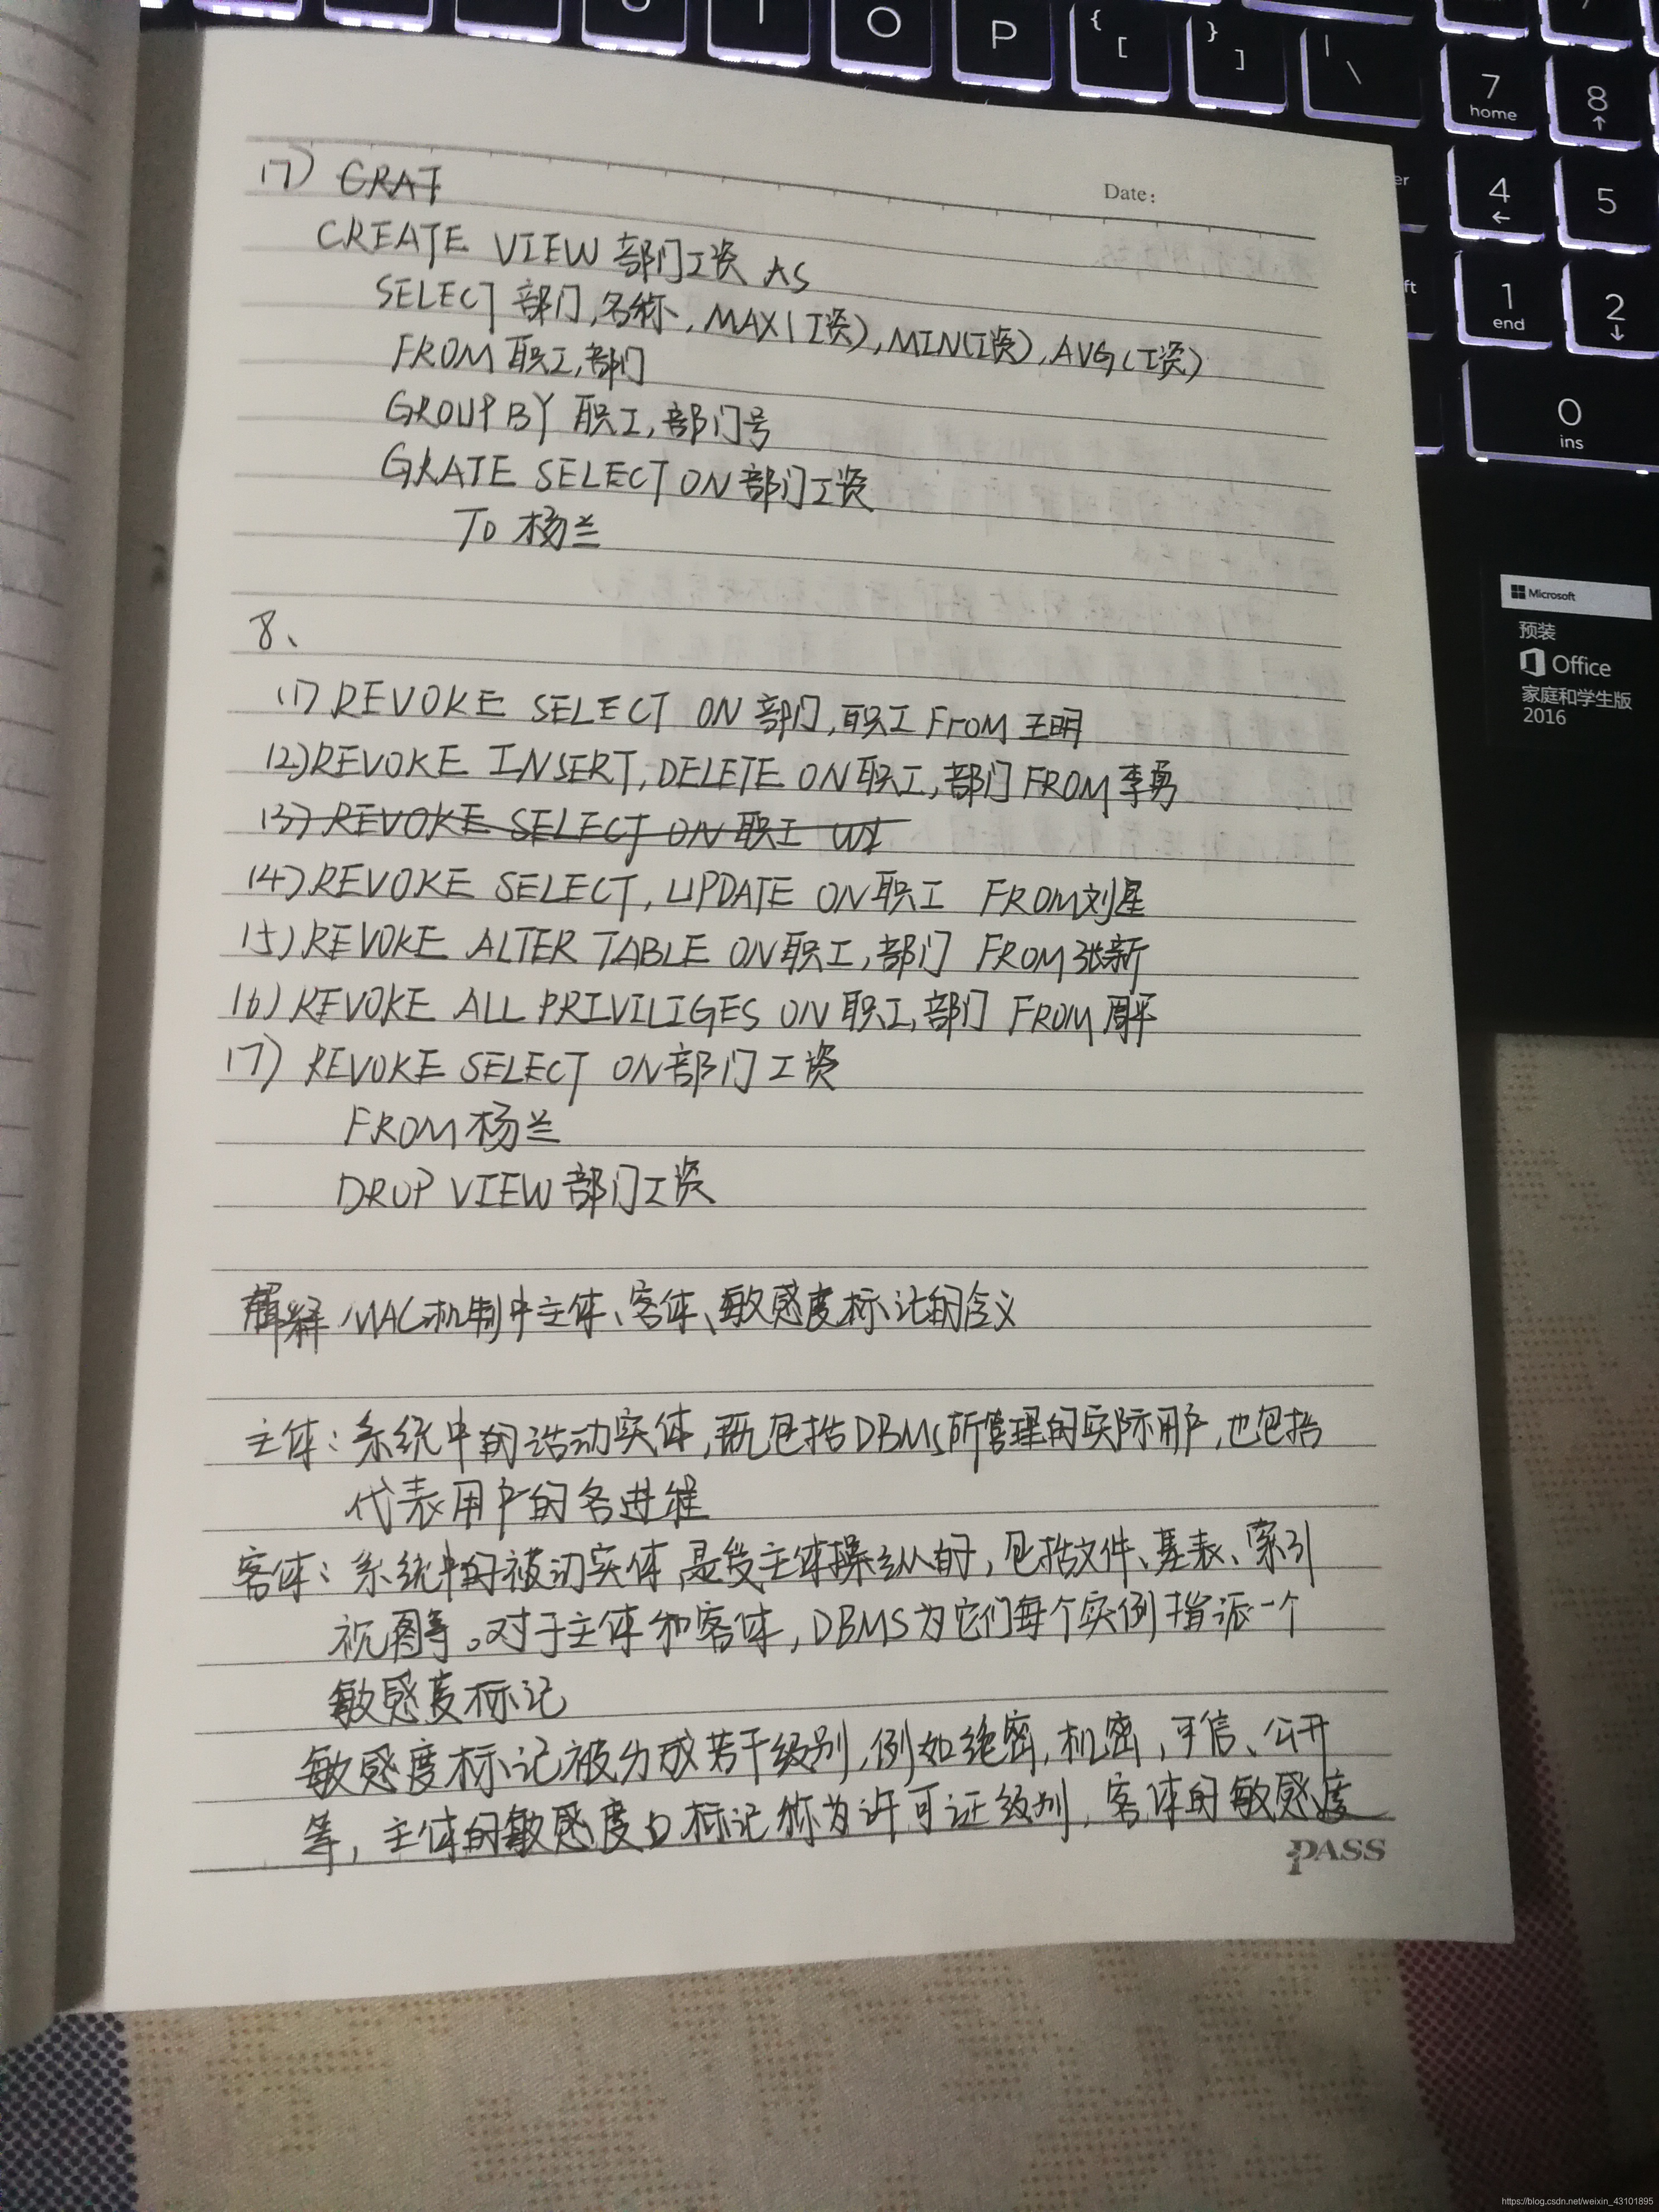 O P { [ } ] | \ 7 home 8 ↑
4 ← 5
1 end 2 ↓
0 ins
Date:
(7) CRAT
CREATE VIEW 部门工资 AS
SELECT 部门,名称, MAX(工资), MIN(工资), AVG(工资)
FROM 职工,部门
GROUP BY 职工,部门号
GRATE SELECT ON 部门工资
TO 杨兰
8、
(1) REVOKE SELECT ON 部门,职工 FROM 王明
(2) REVOKE INSERT, DELETE ON 职工,部门 FROM 李勇
(3) REVOKE SELECT ON 职工
(4) REVOKE SELECT, UPDATE ON 职工 FROM 刘星
(5) REVOKE ALTER TABLE ON 职工,部门 FROM 张新
(6) REVOKE ALL PRIVILIGES ON 职工,部门 FROM 周平
(7) REVOKE SELECT ON 部门工资
FROM 杨兰
DROP VIEW 部门工资
解释 MAC机制中主体、客体、敏感度标记的含义
主体:系统中的活动实体,既包括DBMS所管理的实际用户,也包括
代表用户的各进程
客体:系统中的被动实体,是受主体操纵的,包括文件、基表、索引
视图等。对于主体和客体,DBMS为它们每个实例指派一个
敏感度标记
敏感度标记被分成若干级别,例如绝密,机密,可信、公开
等,主体的敏感度标记称为许可证级别,客体的敏感度
PASS
Microsoft
预装
Office
家庭和学生版
2016
https://blog.csdn.net/weixin_43101895